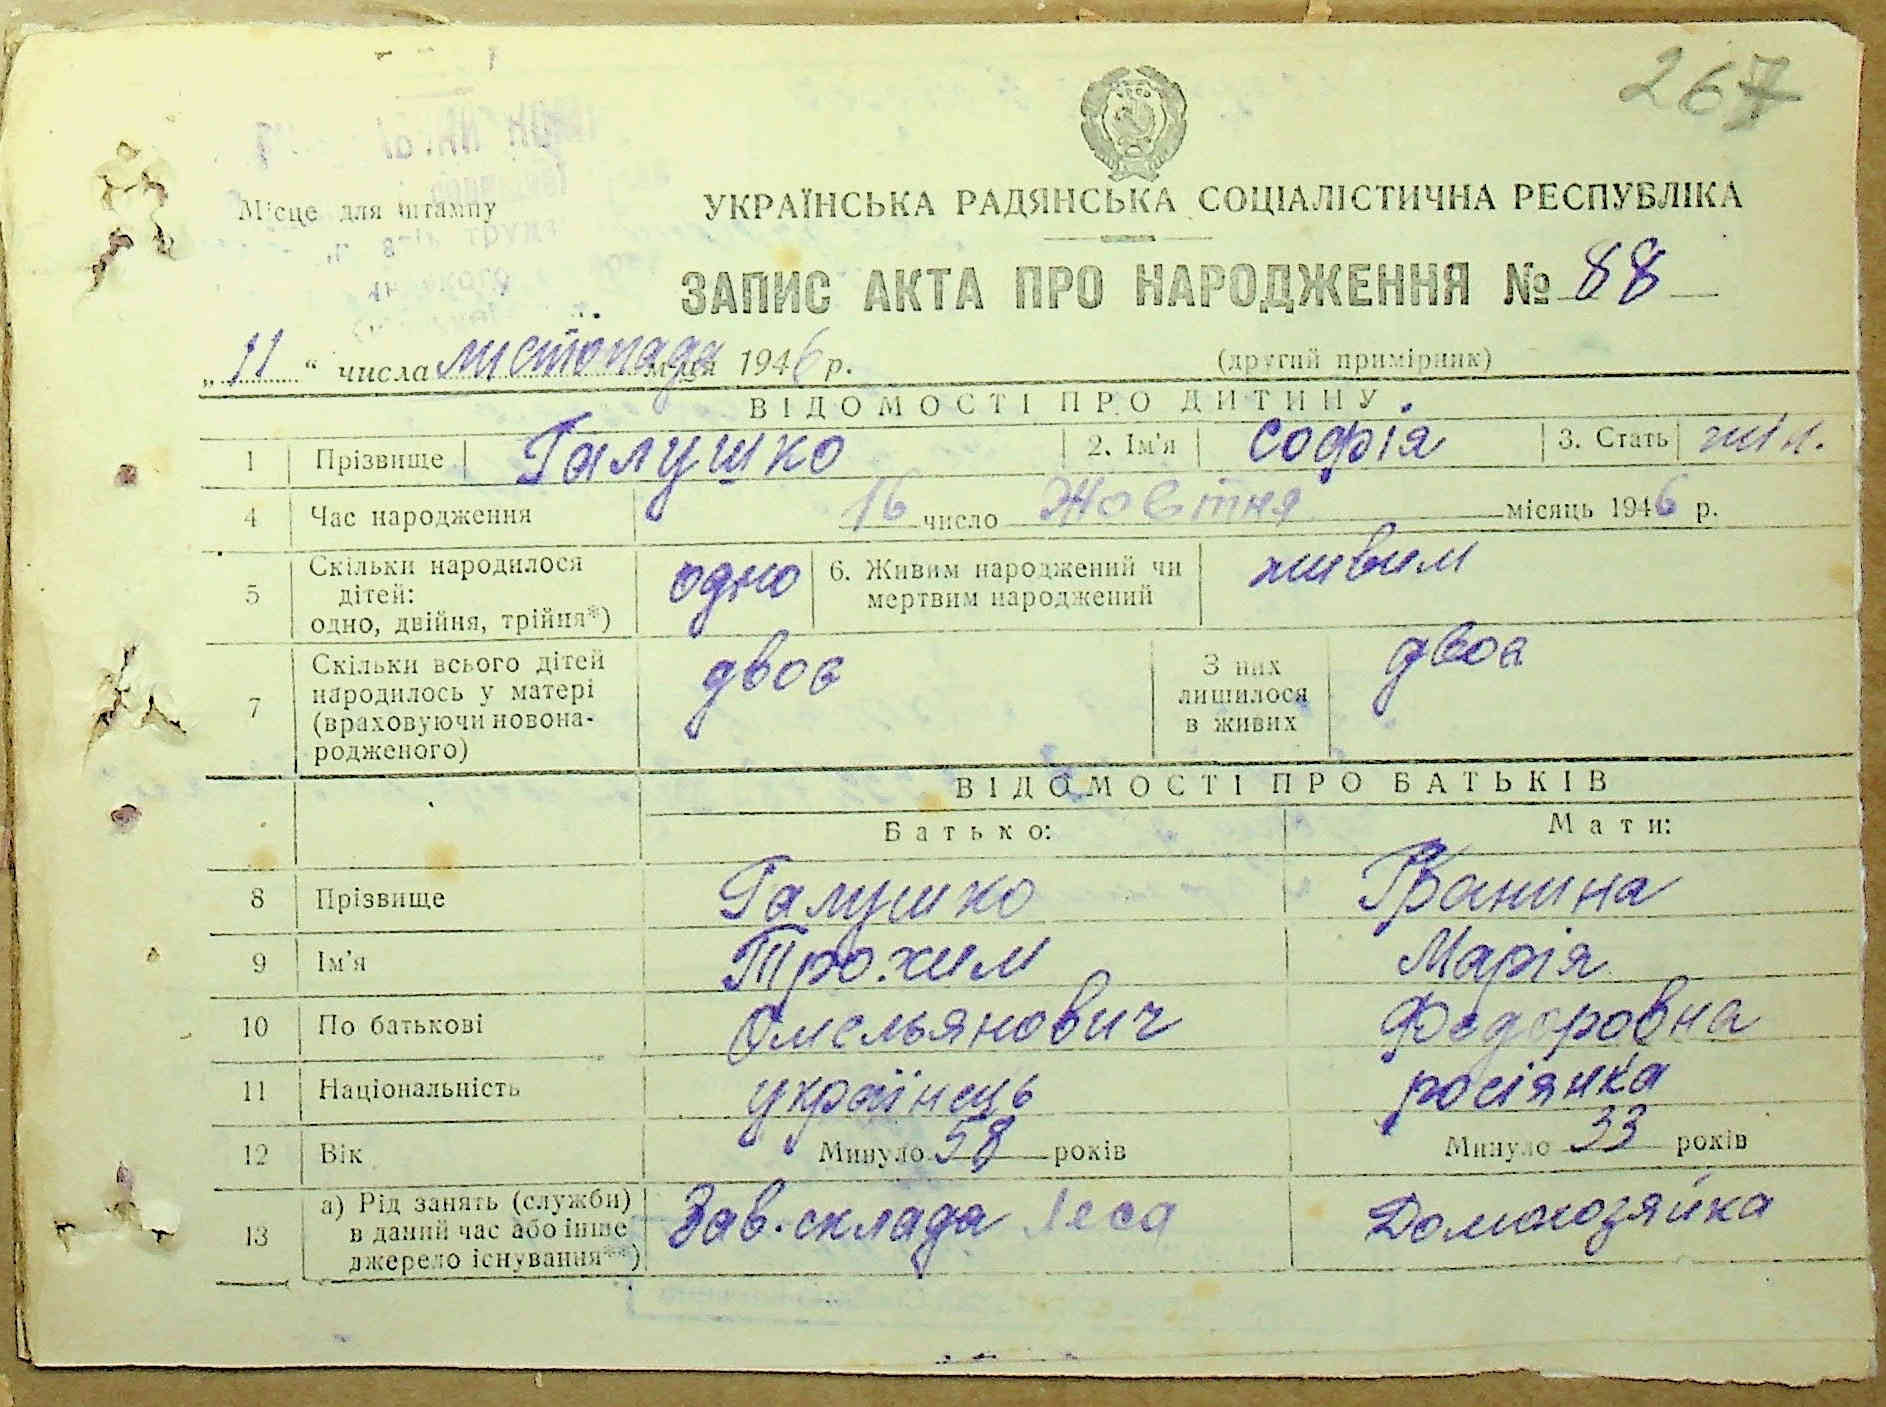 267
Місце для штампу
УКРАЇНСЬКА РАДЯНСЬКА СОЦІАЛІСТИЧНА РЕСПУБЛІКА
ЗАПИС АКТА ПРО НАРОДЖЕННЯ № 88
„11“ числа листопада м-ця 1946 р. (другий примірник)
ВІДОМОСТІ ПРО ДИТИНУ
1 Прізвище Галушко 2. Ім'я Софія 3. Стать жін.
4 Час народження 16 число Жовтня місяць 1946 р.
5 Скільки народилося дітей: одно, двійня, трійня*) одно 6. Живим народжений чи мертвим народжений живим
7 Скільки всього дітей народилось у матері (враховуючи новонародженого) двоє З них лишилося в живих двоє
ВІДОМОСТІ ПРО БАТЬКІВ
Батько: Мати:
8 Прізвище Галушко
9 Ім'я Трохим Марія
10 По батькові Омельянович Федоровна
11 Національність українець росіянка
12 Вік Минуло 58 років Минуло 33 років
13 а) Рід занять (служби) в даний час або інше джерело існування**) Зав. склада леса Домохозяйка